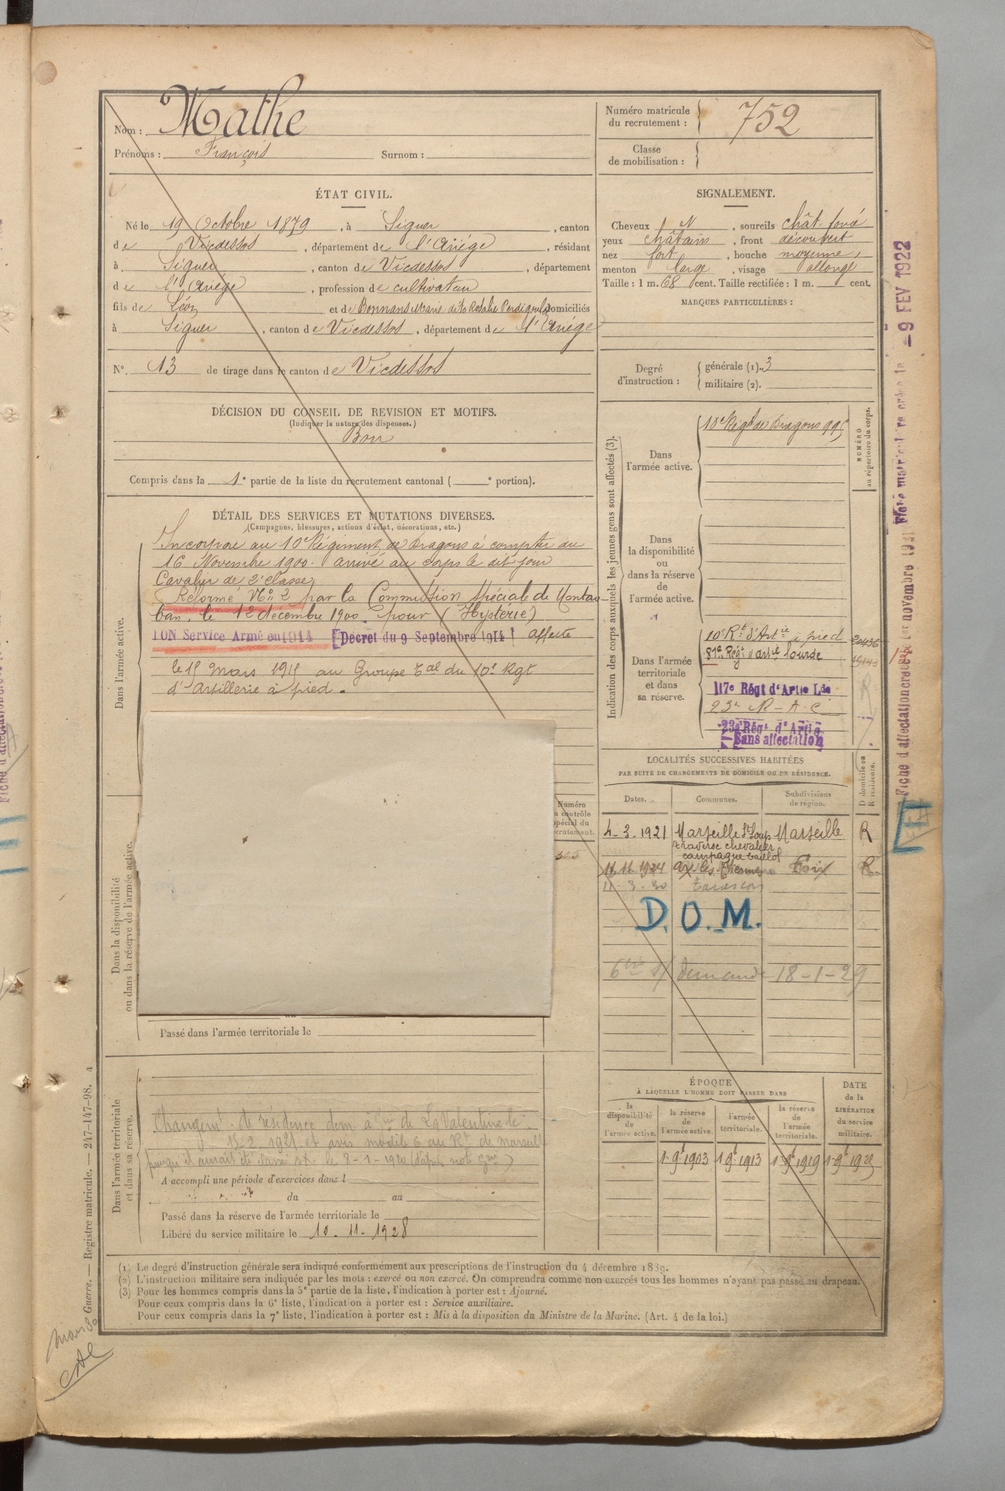 Nom : Mathe
Prénoms : François Surnom :
Numéro matricule du recrutement : 752
Classe de mobilisation :
ÉTAT CIVIL.
Né le 19 Octobre 1879, à Siguer, canton
de Vicdessos, département de l'Ariège, résidant
à Siguer, canton de Vicdessos, département
de l'Ariège, profession de cultivateur
fils de Léon et de domiciliés
à Siguer, canton de Vicdessos, département de l'Ariège
N° 13 de tirage dans le canton de Vicdessos
SIGNALEMENT.
Cheveux N, sourcils chât. foncé
yeux châtain, front découvert
nez fort, bouche moyenne,
menton large, visage allongé
Taille : 1 m. 68 cent. Taille rectifiée : 1 m. cent.
MARQUES PARTICULIÈRES :
Degré d'instruction : générale (1). 3
militaire (2).
DÉCISION DU CONSEIL DE REVISION ET MOTIFS.
(Indiquer la nature des dispenses.)
Bon
Compris dans la 1e partie de la liste du recrutement cantonal ( e portion).
DÉTAIL DES SERVICES ET MUTATIONS DIVERSES.
(Campagnes, blessures, actions d'éclat, décorations, etc.)
Dans l'armée active.
Incorporé au 10e Régiment de Dragons à compter du
16 Novembre 1900. arrivé au corps le dit jour
Cavalier de 2e classe
Réformé No 2 par la Commission spéciale de Montau
ban, le 12 décembre 1900 pour (Hysterie)
ION Service Armé en 1914 [Décret du 9 Septembre 1914] affecté
le 15 mars 1915 au Groupe Tal du 10e Rgt
d'Artillerie à pied.
Numéro
au contrôle
spécial du
recrutement.
Dans la disponibilité
ou dans la réserve de l'armée active.
Passé dans l'armée territoriale le
Dans l'armée territoriale
et dans sa réserve.
Changemt de résidence
A accompli une période d'exercices dans l
du au
Passé dans la réserve de l'armée territoriale le
Libéré du service militaire le 10.11.1928
Indication des corps auxquels les jeunes gens sont affectés (3).
NUMÉRO
au répertoire du corps.
Dans
l'armée active.
10e Régt de Dragons 995
Dans
la disponibilité
ou
dans la réserve
de
l'armée active.
Dans l'armée
territoriale
et dans
sa réserve.
10e Rt d'Artie à pied
Régt d'artie lourde
117e Régt d'Artie Lde
23e R-A-C
23e Régt d'Artie
Sans affectation
LOCALITÉS SUCCESSIVES HABITÉES
PAR SUITE DE CHANGEMENTS DE DOMICILE OU DE RÉSIDENCE.
D domicile ou
R résidence.
Dates. Communes. Subdivisions de région.
4-3-1921 Marseille St Loup Marseille R
traverse chevalier
campagne
11.11.1924 Ax-les-Thermes Foix R
11-3-30 Tarascon
D.O.M.
demande 18-1-29
ÉPOQUE
À LAQUELLE L'HOMME DOIT PASSER DANS
DATE
de la
LIBÉRATION
du service
militaire.
la disponibilité de l'armée active.
la réserve de l'armée active.
l'armée territoriale.
la réserve de l'armée territoriale.
1 9e 1903 1 9e 1913 1 9e 1919
(1) Le degré d'instruction générale sera indiqué conformément aux prescriptions de l'instruction du 4 décembre 1889.
(2) L'instruction militaire sera indiquée par les mots : exercé ou non exercé. On comprendra comme non exercés tous les hommes n'ayant pas passé au drapeau.
(3) Pour les hommes compris dans la 5e partie de la liste, l'indication à porter est : Ajourné.
Pour ceux compris dans la 6e liste, l'indication à porter est : Service auxiliaire.
Pour ceux compris dans la 7e liste, l'indication à porter est : Mis à la disposition du Ministre de la Marine. (Art. 4 de la loi.)
Guerre. — Registre matricule. — 247-147-98.
-9 FEV 1922